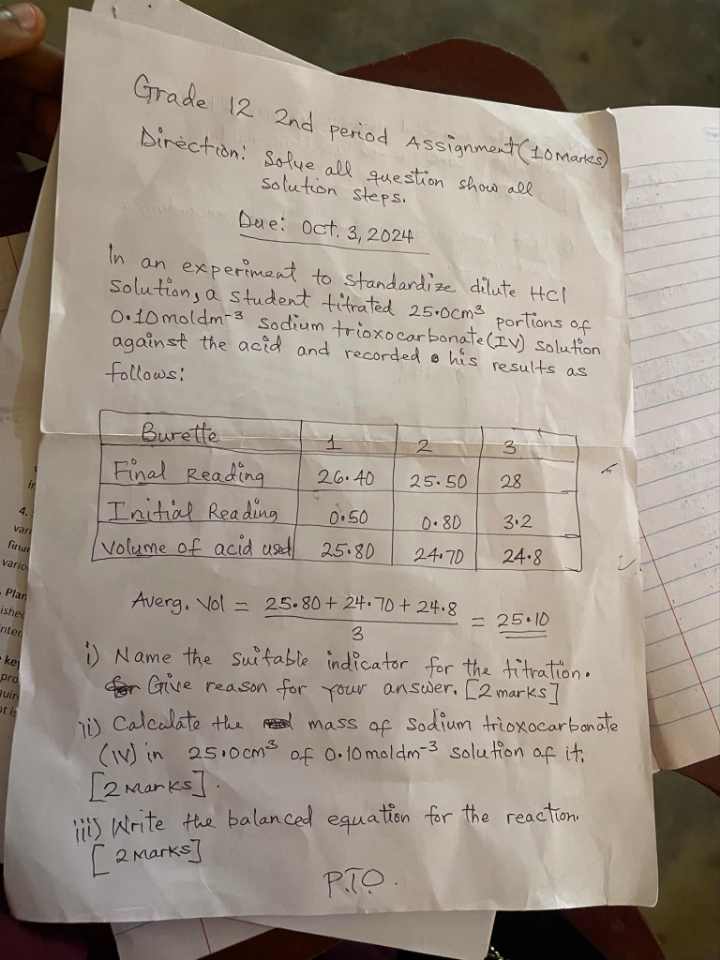 Grade 12 2nd period Assignment (10 marks)
Direction: Solve all question show all
solution steps.
Due: Oct. 3, 2024
In an experiment to standardize dilute HCl
solution, a student titrated 25.0cm³ portions of
0.10moldm⁻³ sodium trioxocarbonate(IV) solution
against the acid and recorded his results as
follows:
Burette 1 2 3
Final Reading 26.40 25.50 28
Initial Reading 0.50 0.80 3.2
Volume of acid used 25.80 24.70 24.8
Averg. Vol = 25.80 + 24.70 + 24.8 / 3 = 25.10
i) Name the suitable indicator for the titration.
Give reason for your answer. [2 marks]
ii) Calculate the mass of Sodium trioxocarbonate
(IV) in 25.0cm³ of 0.10moldm⁻³ solution of it.
[2 Marks].
iii) Write the balanced equation for the reaction.
[2 Marks]
P.T.O.
4.